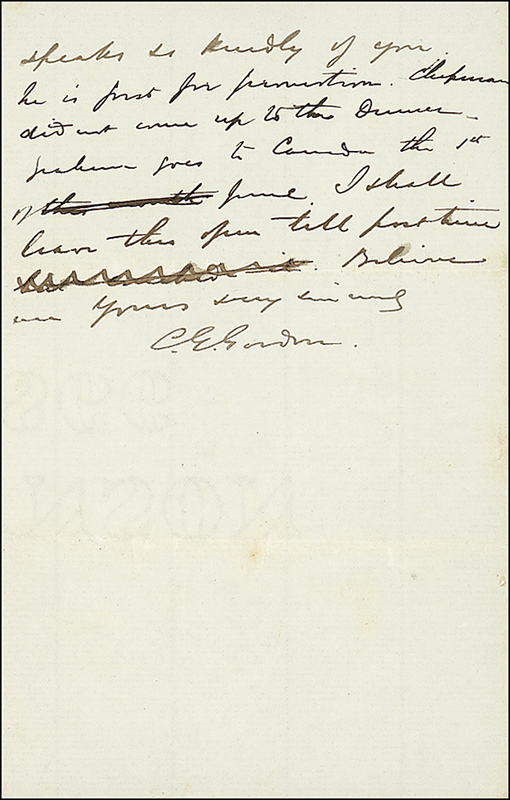 speaks so kindly of you.
he is first for promotion. Chapman
did not come up to the Dinner.
Graham goes to Canada the 1st
of this month June. I shall
leave this open till post time
. Believe
me Yours very sincerely
C.G. Gordon.